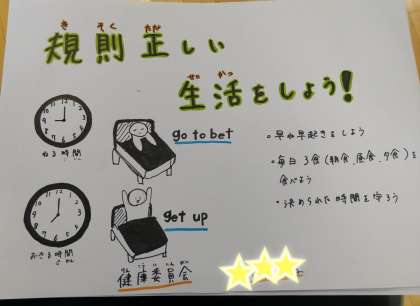 きそくただ
規則正しい
せいかつ
生活をしよう!
12
9
3
6
ねる時間
go to bet
12
9
3
6
おきる時間
get up
・早ね早起きをしよう
・毎日3食(朝食、昼食、夕食)を
食べよう
・決められた時間を守ろう
けんこういいんかい
健康委員会